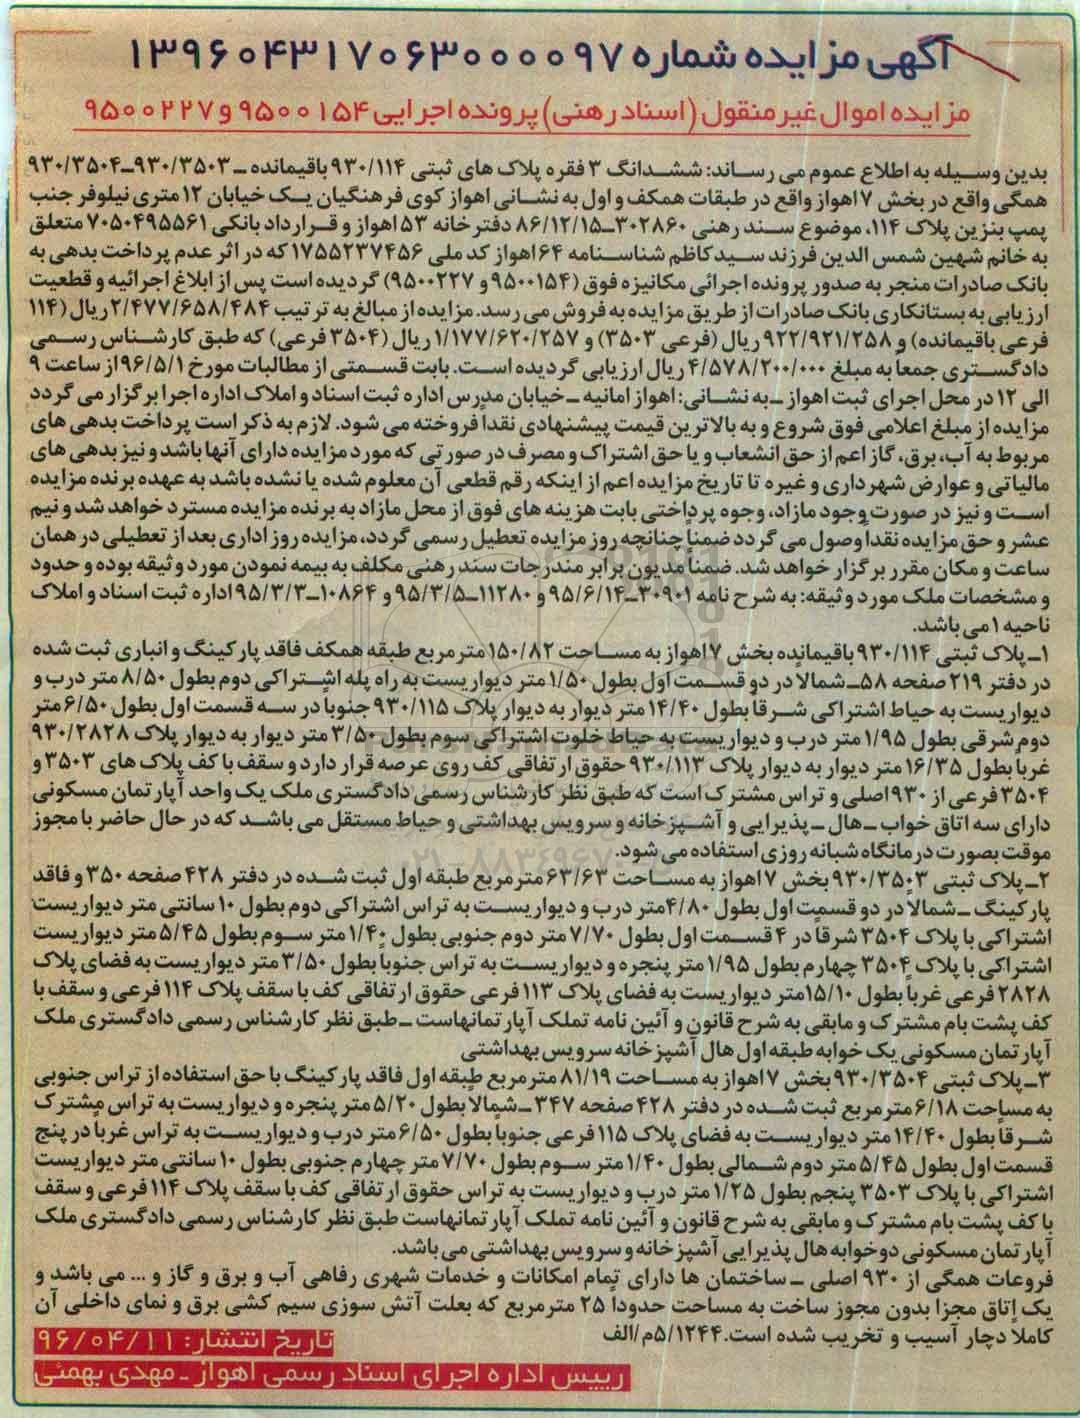 آگهی مزایده شماره ۱۳۹۶۰۴۳۱۷۰۶۳۰۰۰۰۹۷
مزایده اموال غیرمنقول (اسناد رهنی) پرونده اجرایی ۹۵۰۰۱۵۴ و ۹۵۰۰۲۲۷
بدین وسیله به اطلاع عموم می رساند: ششدانگ ۳ فقره پلاک های ثبتی ۹۳۰/۱۱۴ باقیمانده ـ ۹۳۰/۳۵۰۳ـ۹۳۰/۳۵۰۴
همگی واقع در بخش ۷ اهواز واقع در طبقات همکف و اول به نشانی اهواز کوی فرهنگیان یک خیابان ۱۲ متری نیلوفر جنب
پمپ بنزین پلاک ۱۱۴، موضوع سند رهنی ۳۰۲۸۶۰ـ۸۶/۱۲/۱۵ دفترخانه ۵۳ اهواز و قرارداد بانکی ۷۰۵۰۴۹۵۵۶۱ متعلق
به خانم شهین شمس الدین فرزند سید کاظم شناسنامه ۶۴ اهواز کد ملی ۱۷۵۵۲۳۷۴۵۶ که در اثر عدم پرداخت بدهی به
بانک صادرات منجر به صدور پرونده اجرائی مکانیزه فوق (۹۵۰۰۱۵۴ و ۹۵۰۰۲۲۷) گردیده است پس از ابلاغ اجرائیه و قطعیت
ارزیابی به بستانکاری بانک صادرات از طریق مزایده به فروش می رسد. مزایده از مبالغ به ترتیب ۲/۴۷۷/۶۵۸/۴۸۴ ریال (۱۱۴
فرعی باقیمانده) و ۹۲۲/۹۲۱/۲۵۸ ریال (فرعی ۳۵۰۳) و ۱/۱۷۷/۶۲۰/۲۵۷ ریال (۳۵۰۴ فرعی) که طبق کارشناس رسمی
دادگستری جمعا به مبلغ ۴/۵۷۸/۲۰۰/۰۰۰ ریال ارزیابی گردیده است. بابت قسمتی از مطالبات مورخ ۹۶/۵/۱ از ساعت ۹
الی ۱۲ در محل اجرای ثبت اهواز ـ به نشانی: اهواز امانیه ـ خیابان مدرس اداره ثبت اسناد و املاک اداره اجرا برگزار می گردد
مزایده از مبلغ اعلامی فوق شروع و به بالاترین قیمت پیشنهادی نقدا فروخته می شود. لازم به ذکر است پرداخت بدهی های
مربوط به آب، برق، گاز اعم از حق انشعاب و یا حق اشتراک و مصرف در صورتی که مورد مزایده دارای آنها باشد و نیز بدهی های
مالیاتی و عوارض شهرداری و غیره تا تاریخ مزایده اعم از اینکه رقم قطعی آن معلوم شده یا نشده باشد به عهده برنده مزایده
است و نیز در صورت وجود مازاد، وجوه پرداختی بابت هزینه های فوق از محل مازاد به برنده مزایده مسترد خواهد شد و نیم
عشر و حق مزایده نقدا وصول می گردد ضمنا چنانچه روز مزایده تعطیل رسمی گردد، مزایده روز اداری بعد از تعطیلی در همان
ساعت و مکان مقرر برگزار خواهد شد. ضمنا مدیون برابر مندرجات سند رهنی مکلف به بیمه نمودن مورد وثیقه بوده و حدود
و مشخصات ملک مورد وثیقه: به شرح نامه ۳۰۹۰۱ـ۹۵/۶/۱۴ و ۱۱۲۸۰ـ۹۵/۳/۵ و ۱۰۸۶۴ـ۹۵/۳/۳ اداره ثبت اسناد و املاک
ناحیه ۱ می باشد.
۱ـ پلاک ثبتی ۹۳۰/۱۱۴ باقیمانده بخش ۷ اهواز به مساحت ۱۵۰/۸۲ مترمربع طبقه همکف فاقد پارکینگ و انباری ثبت شده
در دفتر ۲۱۹ صفحه ۵۸ـ شمالا در دو قسمت اول بطول ۱/۵۰ متر دیواریست به راه پله اشتراکی دوم بطول ۸/۵۰ متر درب و
دیواریست به حیاط اشتراکی شرقا بطول ۱۴/۴۰ متر دیوار به دیوار پلاک ۹۳۰/۱۱۵ جنوبا در سه قسمت اول بطول ۶/۵۰ متر
دوم شرقی بطول ۱/۹۵ متر درب و دیواریست به حیاط خلوت اشتراکی سوم بطول ۳/۵۰ متر دیوار به دیوار پلاک ۹۳۰/۲۸۲۸
غربا بطول ۱۶/۳۵ متر دیوار به دیوار پلاک ۹۳۰/۱۱۳ حقوق ارتفاقی کف روی عرصه قرار دارد و سقف با کف پلاک های ۳۵۰۳ و
۳۵۰۴ فرعی از ۹۳۰ اصلی و تراس مشترک است که طبق نظر کارشناس رسمی دادگستری ملک یک واحد آپارتمان مسکونی
دارای سه اتاق خواب ـ هال ـ پذیرایی و آشپزخانه و سرویس بهداشتی و حیاط مستقل می باشد که در حال حاضر با مجوز
موقت بصورت درمانگاه شبانه روزی استفاده می شود.
۲ـ پلاک ثبتی ۹۳۰/۳۵۰۳ بخش ۷ اهواز به مساحت ۶۳/۶۳ مترمربع طبقه اول ثبت شده در دفتر ۴۲۸ صفحه ۳۵۰ و فاقد
پارکینگ ـ شمالا در دو قسمت اول بطول ۴/۸۰ متر درب و دیواریست به تراس اشتراکی دوم بطول ۱۰ سانتی متر دیواریست
اشتراکی با پلاک ۳۵۰۴ شرقا در ۴ قسمت اول بطول ۷/۷۰ متر دوم جنوبی بطول ۱/۴۰ متر سوم بطول ۵/۴۵ متر دیواریست
اشتراکی با پلاک ۳۵۰۴ چهارم بطول ۱/۹۵ متر پنجره و دیواریست به تراس جنوبا بطول ۳/۵۰ متر دیواریست به فضای پلاک
۲۸۲۸ فرعی غربا بطول ۱۵/۱۰ متر دیواریست به فضای پلاک ۱۱۳ فرعی حقوق ارتفاقی کف با سقف پلاک ۱۱۴ فرعی و سقف با
کف پشت بام مشترک و مابقی به شرح قانون و آئین نامه تملک آپارتمانهاست ـ طبق نظر کارشناس رسمی دادگستری ملک
آپارتمان مسکونی یک خوابه طبقه اول هال آشپزخانه سرویس بهداشتی
۳ـ پلاک ثبتی ۹۳۰/۳۵۰۴ بخش ۷ اهواز به مساحت ۸۱/۱۹ مترمربع طبقه اول فاقد پارکینگ با حق استفاده از تراس جنوبی
به مساحت ۶/۱۸ مترمربع ثبت شده در دفتر ۴۲۸ صفحه ۳۴۷ ـ شمالا بطول ۵/۲۰ متر پنجره و دیواریست به تراس مشترک
شرقا بطول ۱۴/۴۰ متر دیواریست به فضای پلاک ۱۱۵ فرعی جنوبا بطول ۶/۵۰ متر درب و دیواریست به تراس غربا در پنج
قسمت اول بطول ۵/۴۵ متر دوم شمالی بطول ۱/۴۰ متر سوم بطول ۷/۷۰ متر چهارم جنوبی بطول ۱۰ سانتی متر دیواریست
اشتراکی با پلاک ۳۵۰۳ پنجم بطول ۱/۲۵ متر درب و دیواریست به تراس حقوق ارتفاقی کف با سقف پلاک ۱۱۴ فرعی و سقف
با کف پشت بام مشترک و مابقی به شرح قانون و آئین نامه تملک آپارتمانهاست طبق نظر کارشناس رسمی دادگستری ملک
آپارتمان مسکونی دوخوابه هال پذیرایی آشپزخانه و سرویس بهداشتی می باشد.
فروعات همگی از ۹۳۰ اصلی ـ ساختمان ها دارای تمام امکانات و خدمات شهری رفاهی آب و برق و گاز و ... می باشد و
یک اتاق مجزا بدون مجوز ساخت به مساحت حدودا ۲۵ مترمربع که بعلت آتش سوزی سیم کشی برق و نمای داخلی آن
کاملا دچار آسیب و تخریب شده است. ۵/۱۲۴۴م/الف
تاریخ انتشار: ۹۶/۰۴/۱۱
رییس اداره اجرای اسناد رسمی اهواز ـ مهدی بهمئی